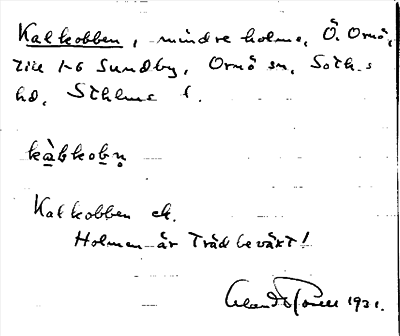 Kalkobben, mindre holme, Ö. Ornö,
till 1-6 Sundby, Ornö sn, Soth.s
hd, Sthlms l.
kàbkobn̥
Kalkobben ek.
Holmen är trädbeväxt!
1931.